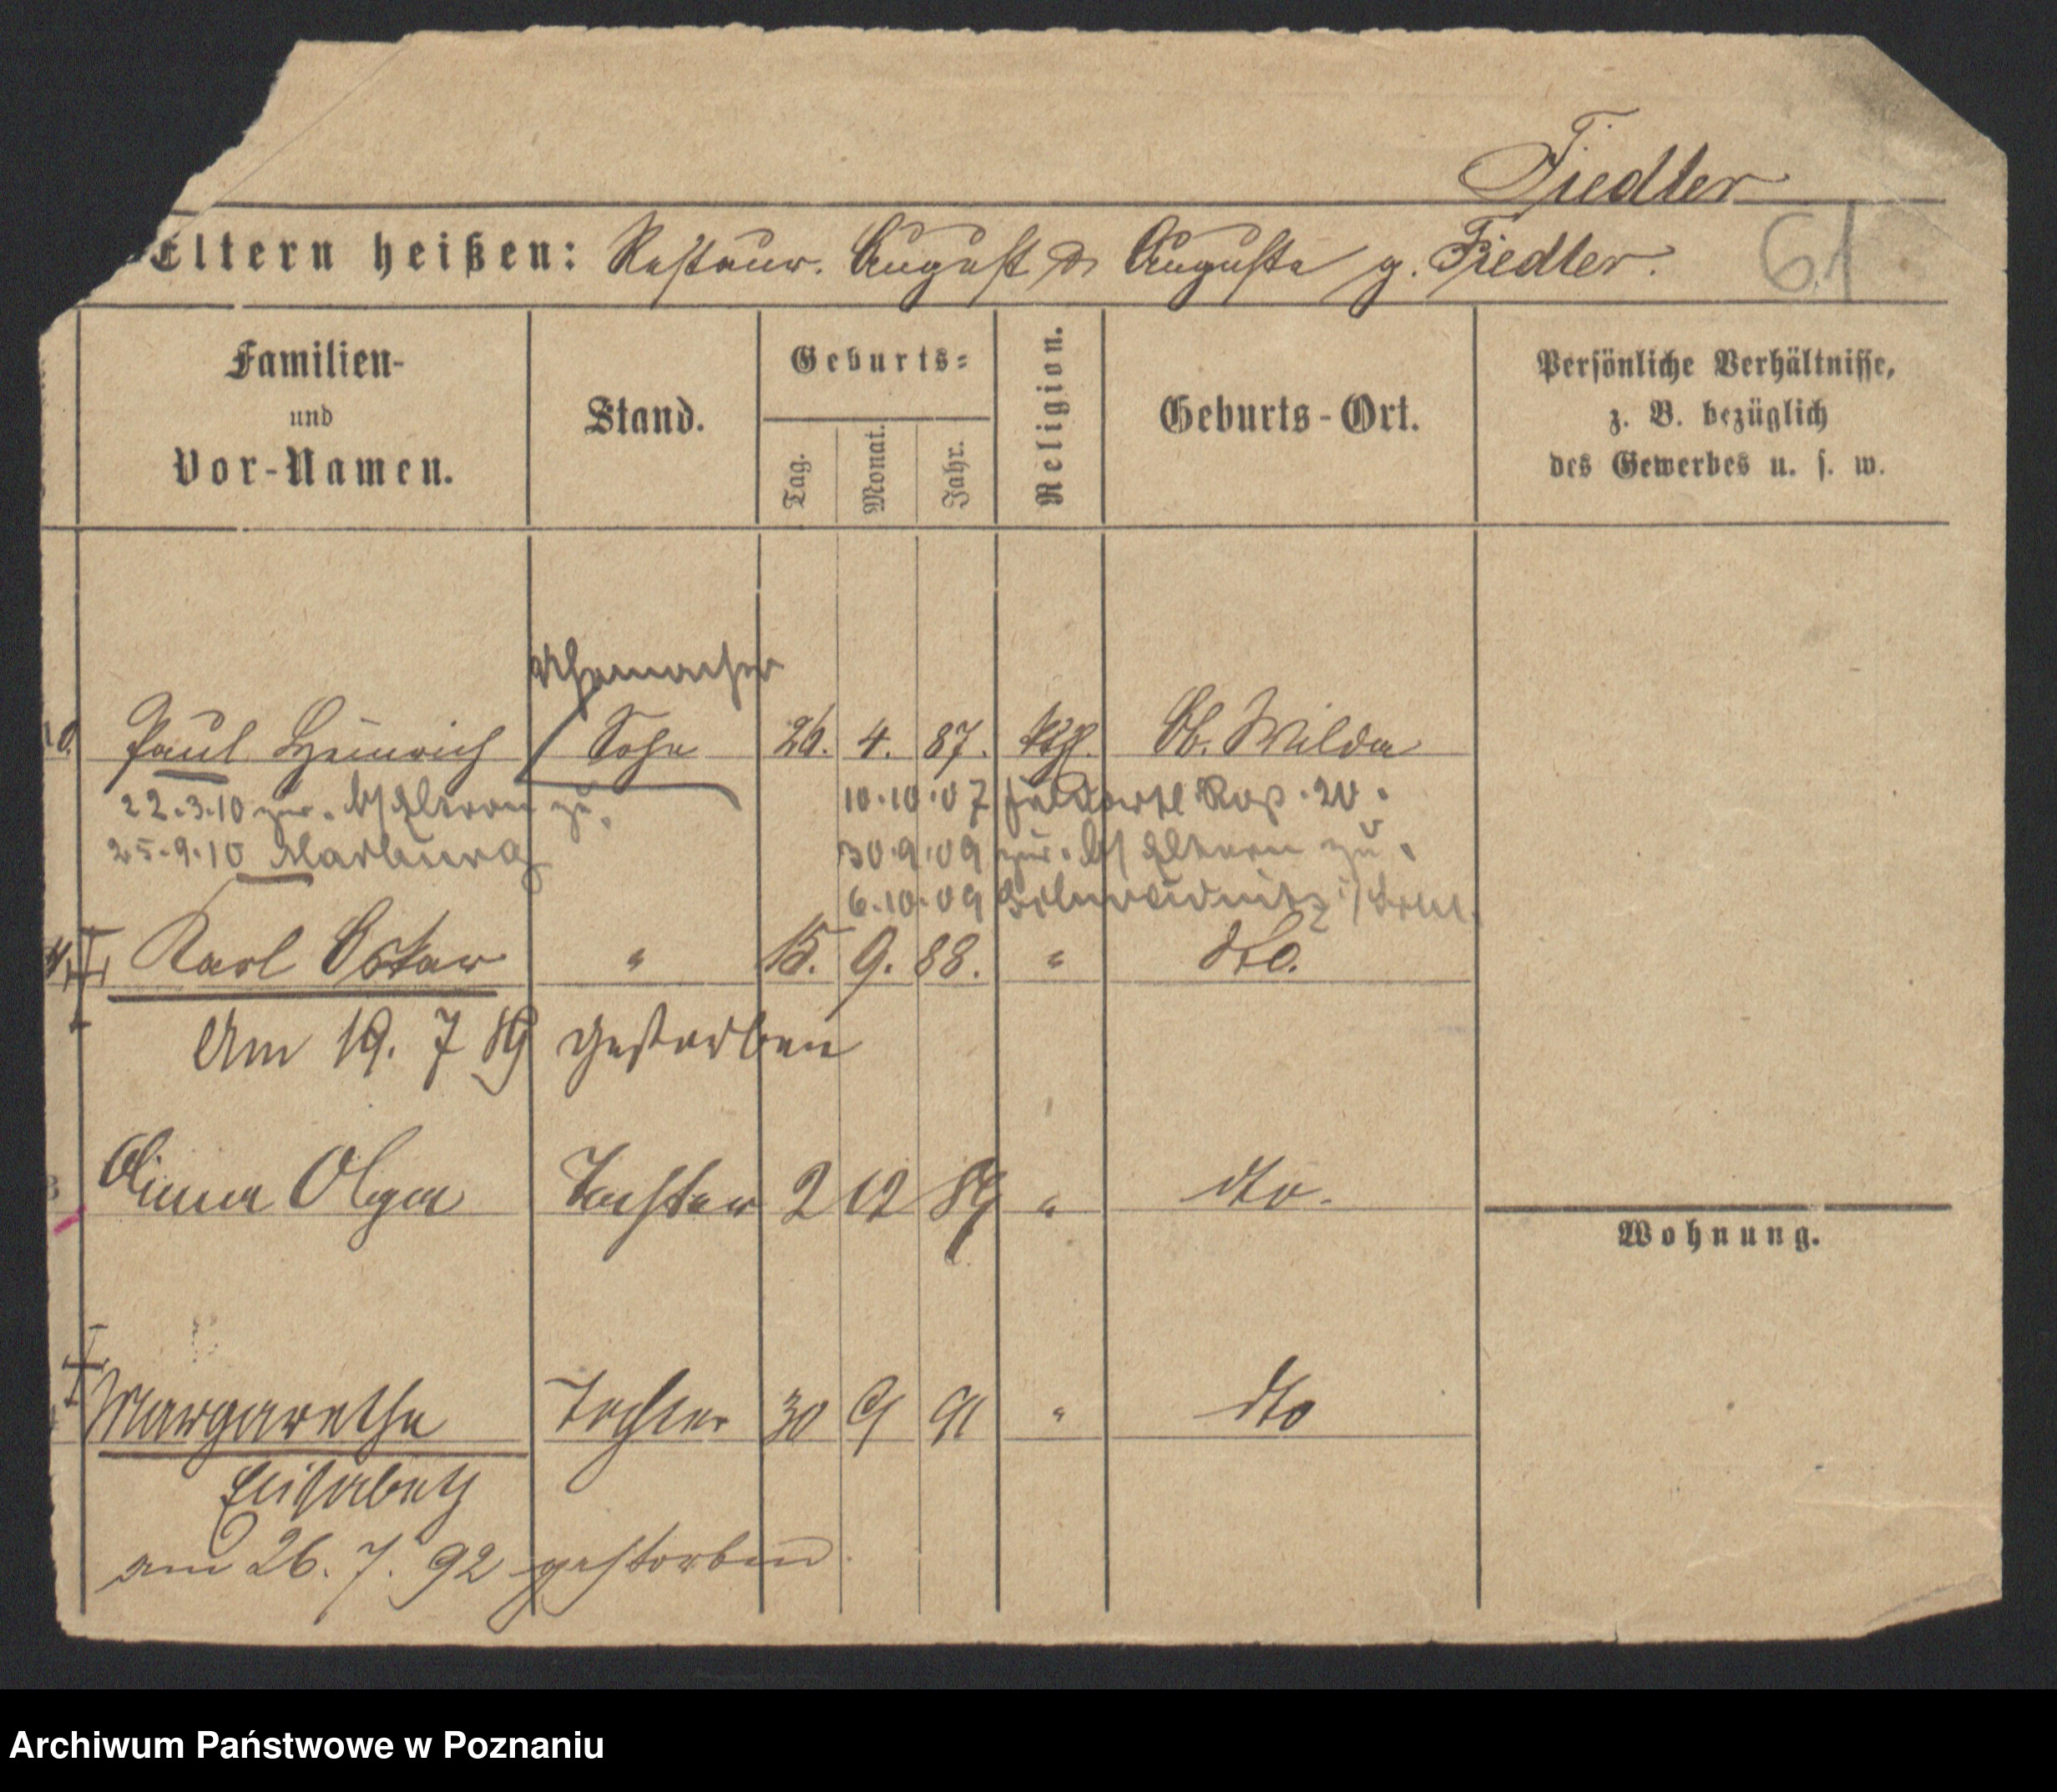 Fiedler
Eltern heißen: Restaur. August & Auguste g. Fiedler.
61
Familien-
und
Vor-Namen.
Stand.
Geburts-
Tag.
Monat.
Jahr.
Religion.
Geburts-Ort.
Persönliche Verhältnisse,
z. B. bezüglich
des Gewerbes u. s. w.
Uhrmacher
10. Paul Heinrich Sohn 26. 4. 87. kth. Ob. Wilda
22.3.10 zur. b/ Eltern zu. 10.10.07 20.
25.9.10 Marburg 30.9.09 zur. b/ Eltern zu.
6.10.09 Schweidnitz
Karl Oskar " 15. 9. 88. " dto.
Am 19. 7 89 gestorben
Anna Olga Tochter 2 12 89 " dto.
Wohnung.
Margarethe Tochter 30 9 91 " dto
Elisabeth
am 26. 7. 92 gestorben.
Archiwum Państwowe w Poznaniu